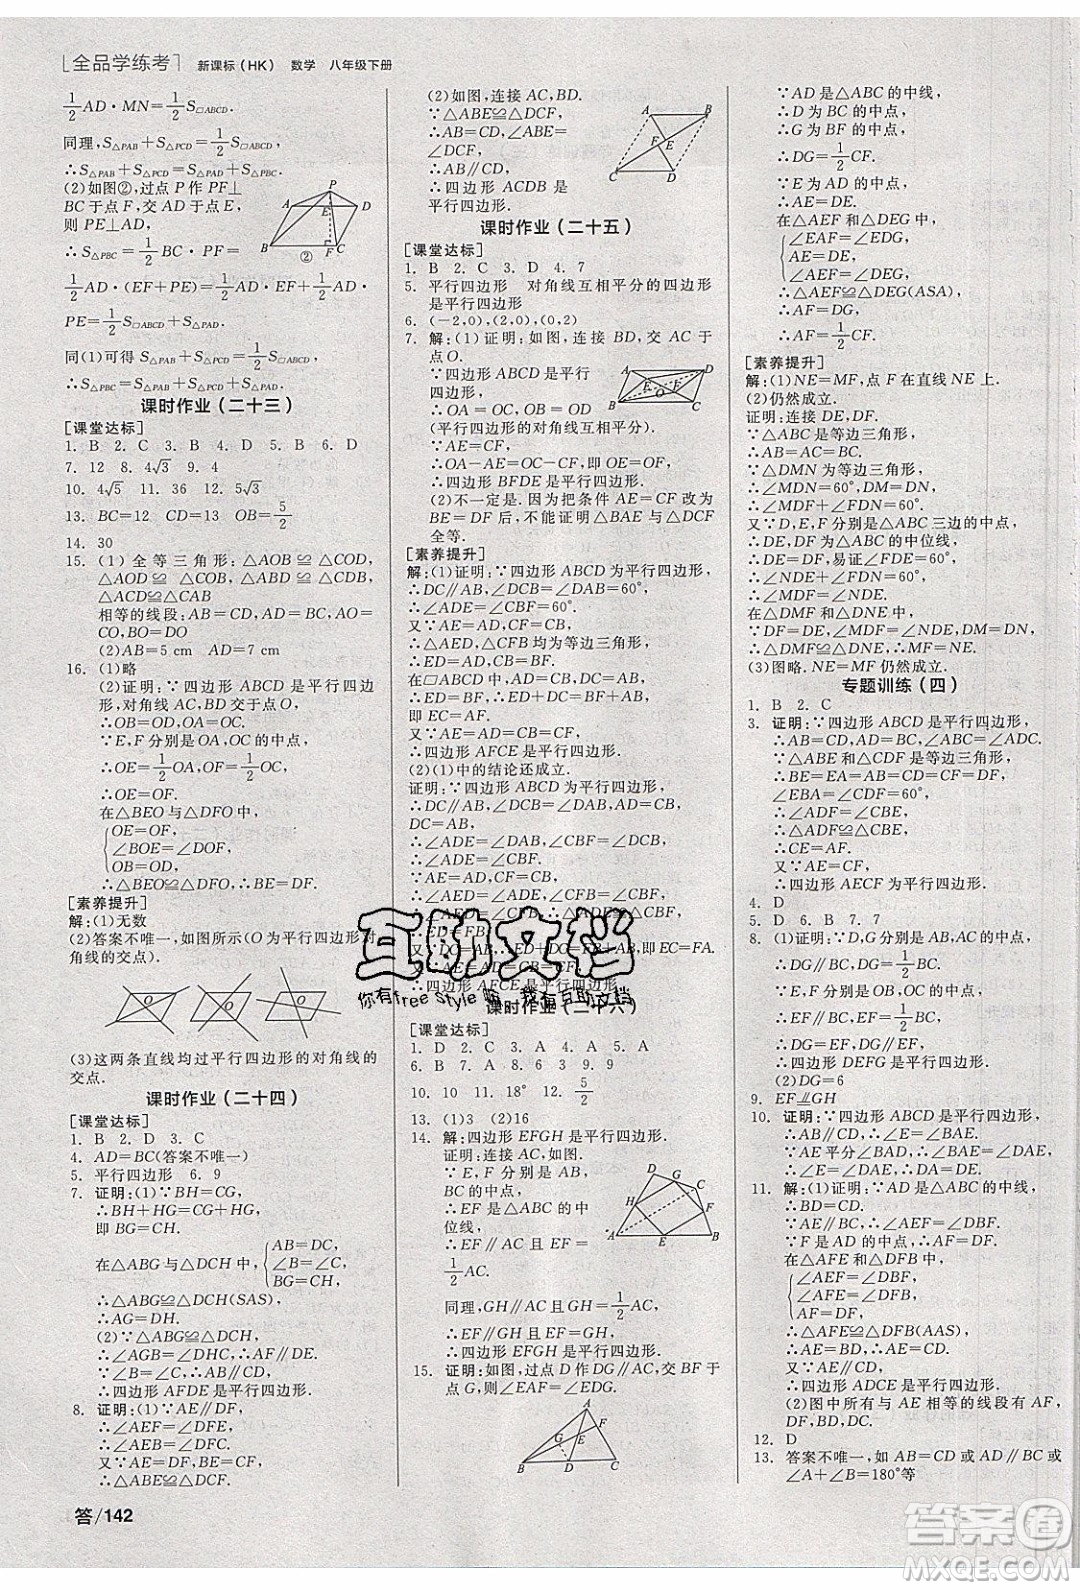 全品学练考 新课标(HK) 数学 八年级下册
1/2AD·MN=1/2S□ABCD.
同理,S△PAB+S△PCD=1/2S□ABCD.
∴S△PAB+S△PCD=S△PBC+S△PAD.
(2)如图②,过点P作PF⊥
BC于点F,交AD于点E,
则PE⊥AD,
∴S△PBC=1/2BC·PF=
1/2AD·(EF+PE)=1/2AD·EF+1/2AD·
PE=1/2S□ABCD+S△PAD.
同(1)可得S△PAB+S△PCD=1/2S□ABCD.
∴S△PBC=S△PAB+S△PCD+S△PAD.
课时作业(二十三)
[课堂达标]
1. B 2. C 3. B 4. D 5. B 6. D
7. 12 8. 4√3 9. 4
10. 4√5 11. 36 12. 5√3
13. BC=12 CD=13 OB=5/2
14. 30
15. (1)全等三角形:△AOB≌△COD,
△AOD≌△COB,△ABD≌△CDB,
△ACD≌△CAB
相等的线段:AB=CD,AD=CB,AO=
CO,BO=DO
(2)AB=5 cm AD=7 cm
16. (1)略
(2)证明:∵四边形ABCD是平行四边
形,对角线AC,BD交于点O,
∴OB=OD,OA=OC.
∵E,F分别是OA,OC的中点,
∴OE=1/2OA,OF=1/2OC,
∴OE=OF.
在△BEO与△DFO中,
OE=OF,
∠BOE=∠DOF,
OB=OD,
∴△BEO≌△DFO.
[素养提升]
解:(1)无数
(2)答案不唯一,如图所示(O为平行四边形对
角线的交点).
(3)这两条直线均过平行四边形的对角线的
交点.
课时作业(二十四)
[课堂达标]
1. B 2. D 3. C
4. AD=BC(答案不唯一)
5. 平行四边形 6. 9
7. 证明:(1)∵BH=CG,
∴BH+HG=CG+HG,
即BG=CH.
在△ABG与△DCH中,
AB=DC,
∠B=∠C,
BG=CH,
∴△ABG≌△DCH(SAS),
∴AG=DH.
(2)∵△ABG≌△DCH,
∴∠AGB=∠DHC,
∴AG∥DH.
∵∠B=∠C,∴AB∥DC,
∴四边形AFDE是平行四边形.
8. 证明:(1)∵AE∥DF,
∴∠AEF=∠DFE,
∴∠AEB=∠DFC.
又∵BE=CF,AE=DF,
∴△ABE≌△DCF.
答/142
(2)如图,连接AC,BD.
∵△ABE≌△DCF,
∴AB=CD,∠ABE=
∠DCF,
∴AB∥CD,
∴四边形ACDB是
平行四边形.
课时作业(二十五)
[课堂达标]
1. B 2. C 3. D 4. 7
5. 平行四边形 对角线互相平分的四边形
是平行四边形
6. (-2,0),(2,0),(0,2)
7. 解:(1)证明:如图,连接BD,交AC于
点O.
∵四边形ABCD是平行
四边形,
∴OA=OC,OB=OD
(平行四边形的对角线互相平分).
∵AE=CF,
∴OA-AE=OC-CF,即OE=OF,
∴四边形DEBF是平行四边形.
(2)不一定是.因为把条件AE=CF改为
BE=DF后,不能证明△BAE与△DCF
全等.
[素养提升]
解:(1)证明:∵四边形ABCD为平行四边形,
∴DC∥AB,∠DCB=∠DAB=60°,
∴∠ADE=∠CBF=60°.
又∵AE=AD,CF=CB,
∴△AED,△CFB均为等边三角形,
∴ED=AD=CB=BF.
在□ABCD中,∵AB=DC,
∴ED+DC=BF+AB,
即EC=AF.
又∵AE=AD=CB=CF,
∴四边形AFCE是平行四边形.
(2)(1)中的结论还成立.
证明:∵四边形ABCD为平行四边形,
∴DC∥AB,∠DCB=∠DAB,AD=BC,
DC=AB,
∴∠ADE=∠DAB,∠CBF=∠DCB,
∴∠ADE=∠CBF.
∵AE=AD,CF=CB,
∴∠AED=∠ADE,∠CFB=∠CBF,
∴∠AED=∠CFB.
∴ED=FB.
∵DC=AB,∴DC+ED=AB+FB,即EC=FA.
∴四边形AFCE是平行四边形.
课时作业(二十六)
[课堂达标]
1. D 2. C 3. A 4. A 5. A
6. B 7. A 8. 3 9. 9
10. 10 11. 18° 12. 5/2
13. (1)3 (2)16
14. 解:四边形EFGH是平行四边形.
证明:如图,连接AC.
∵E,F分别是AB,
BC的中点,
∴EF是△ABC的中
位线,
∴EF∥AC且EF=
1/2AC.
同理,GH∥AC且GH=1/2AC,
∴EF∥GH且EF=GH,
∴四边形EFGH是平行四边形.
15. 证明:如图,过点D作DG∥AC,交BF于
点G,则∠EAF=∠EDG.
∵AD是△ABC的中线,
∴D为BC的中点,
∴G为BF的中点,
∴DG=1/2CF.
∵AF=1/2CF,
∴AF=DG.
∵E为AD的中点,
∴AE=DE.
在△AEF和△DEG中,
∠EAF=∠EDG,
AE=DE,
∠AEF=∠DEG,
∴△AEF≌△DEG(ASA),
∴AF=DG,
∴AF=1/2CF.
[素养提升]
解:(1)NE=MF,点F在直线NE上.
(2)仍然成立.
证明:连接DE,DF.
∵△ABC是等边三角形,
∴AB=AC=BC.
∵△DMN为等边三角形,
∴∠MDN=60°,DM=DN,
∴∠MDF+∠FDN=60°.
又∵D,E,F分别是△ABC三边的中点,
∴DE,DF,EF为等边三角形ABC的中位线,
∴DE=DF=EF,
∴∠FDE=60°,
∴∠NDE+∠FDN=60°,
∴∠MDF=∠NDE.
在△DMF和△DNE中,
∵DF=DE,∠MDF=∠NDE,DM=DN,
∴△DMF≌△DNE,∴MF=NE.
(3)图略.NE=MF仍然成立.
专题训练(四)
1. B 2. C
3. 证明:∵四边形ABCD是平行四边形,
∴AB=CD,AD=CB,∠ABC=∠ADC.
∵△ABE和△CDF是等边三角形,
∴BE=AE=AB=CD=CF=DF,
∠EBA=∠CDF=60°,
∴∠ADF=∠CBE,
∴△ADF≌△CBE,
∴CE=AF.
又∵AE=CF,
∴四边形AECF是平行四边形.
4. D
5. D 6. B 7. 7
8. (1)证明:∵D,G分别是AB,AC的中点,
∴DG∥BC,DG=1/2BC.
∵E,F分别是OB,OC的中点,
∴EF∥BC,EF=1/2BC,
∴DG=EF,DG∥EF,
∴四边形DEFG是平行四边形.
(2)DG=6
9. EF⫽GH
10. 证明:∵四边形ABCD是平行四边形,
∴AB∥CD,∴∠E=∠BAE.
∵AE平分∠BAD,∴∠BAE=∠DAE,
∴∠E=∠DAE,∴DA=DE.
11. 解:(1)证明:∵AD是△ABC的中线,
∴BD=CD.
∵AE∥BC,∴∠AEF=∠DBF.
∵F是AD的中点,∴AF=DF.
在△AFE和△DFB中,
∠AEF=∠DBF,
∠AFE=∠DFB,
AF=DF,
∴△AFE≌△DFB(AAS),
∴AE=BD,∴AE=CD.
又∵AE∥CD,
∴四边形ADCE是平行四边形.
(2)图中所有与AE相等的线段有AF,
DF,BD,DC.
12. D
13. 答案不唯一,如AB=CD或AD∥BC或
∠A+∠B=180°等
互助文档
你有free style 嘛,我有互助文档
答案圈
MXQE.COM